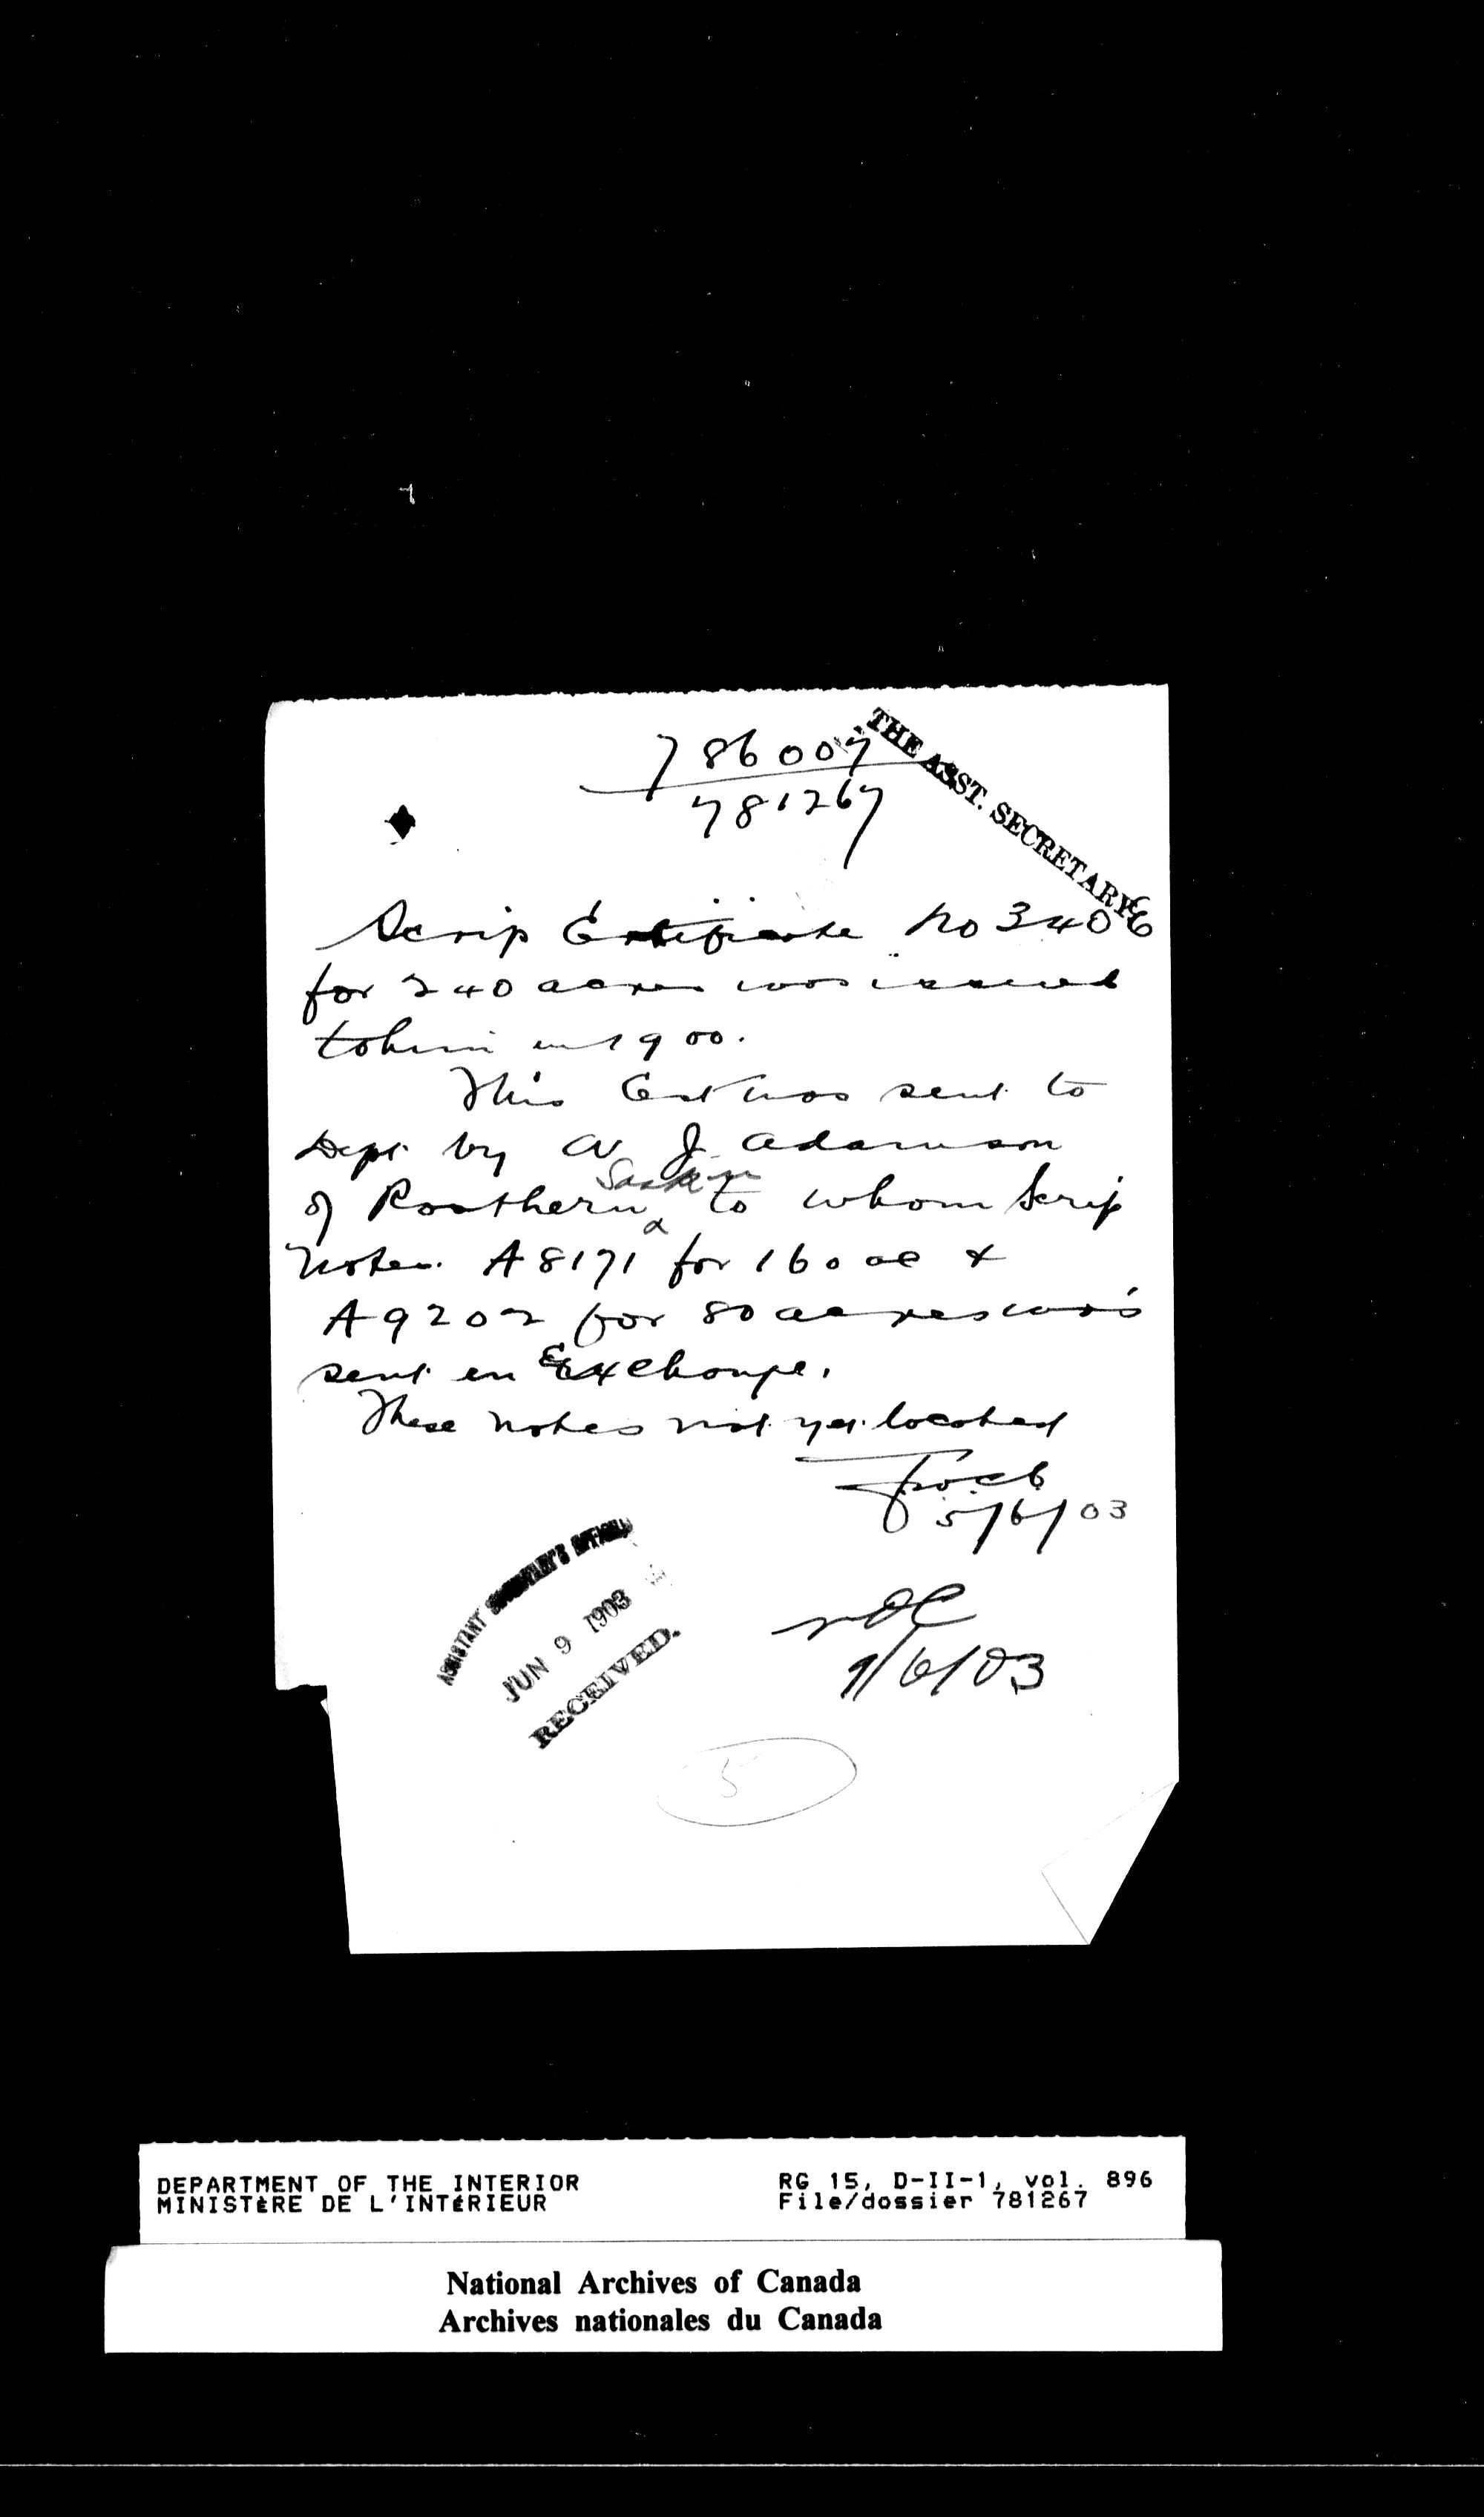 786007
781267
THE ASST. SECRETARY
Scrip Certificate No 3406
for 240 acres was issued
to him in 1900.
This Cert was sent to
Dept. by A J. Adamson
Saskn
of Rosthern to whom Scrip
Notes. A8171 for 160 ac &
A9202 for 80 acres was
sent in Exchange.
These notes not yet located
5/6/03
ASSISTANT SECRETARY'S OFFICE
JUN 9 1903
RECEIVED.
9/6/03
5
DEPARTMENT OF THE INTERIOR
MINISTÈRE DE L'INTÉRIEUR
RG 15, D-II-1, vol. 896
File/dossier 781267
National Archives of Canada
Archives nationales du Canada